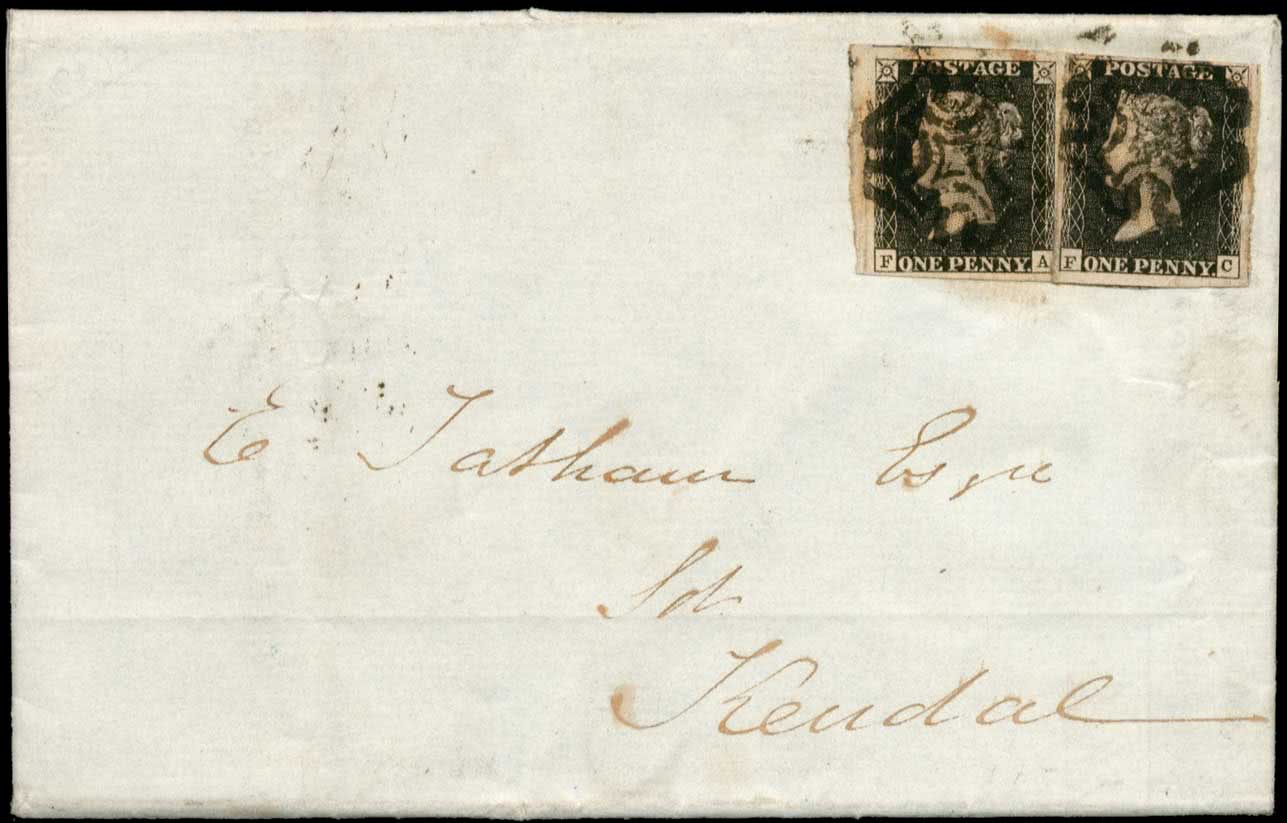 POSTAGE POSTAGE
F ONE PENNY. A F ONE PENNY. C
E Tatham Esqre
Solr
Kendal